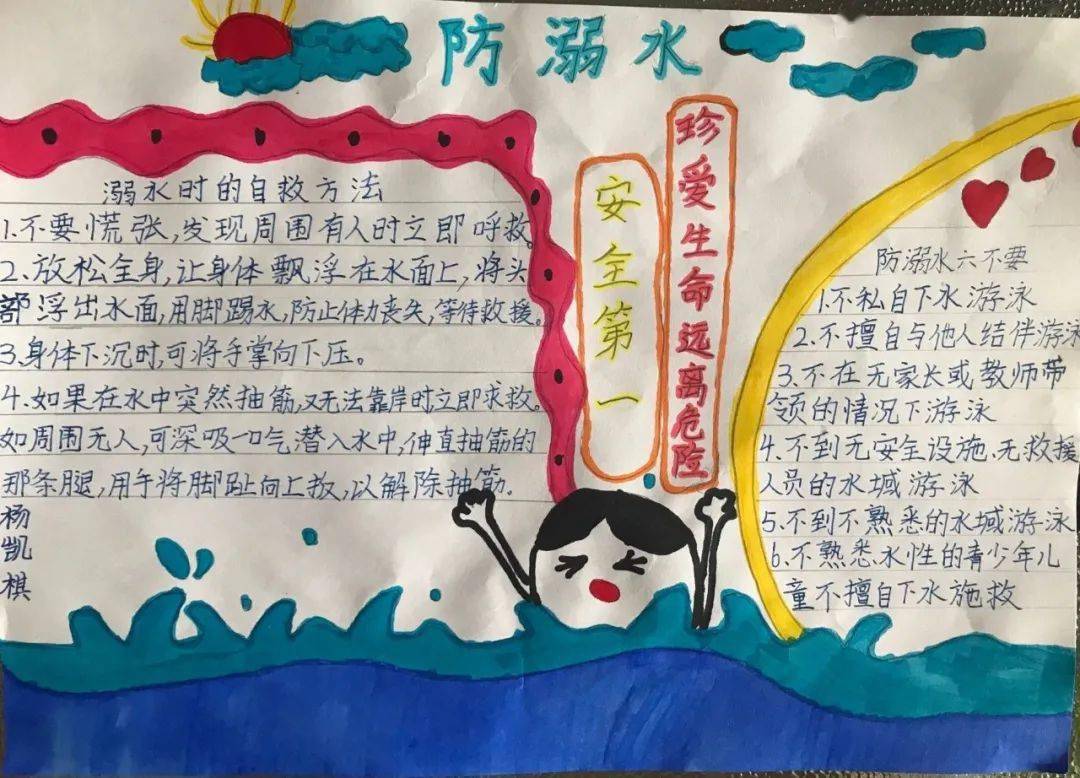 防溺水
溺水时的自救方法
1.不要慌张,发现周围有人时立即呼救。
2.放松全身,让身体飘浮在水面上,将头
部浮出水面,用脚踢水,防止体力丧失,等待救援。
3.身体下沉时,可将手掌向下压。
4.如果在水中突然抽筋,又无法靠岸时立即求救。
如周围无人,可深吸一口气潜入水中,伸直抽筋的
那条腿,用手将脚趾向上扳,以解除抽筋.
杨
凯
棋
安全第一
珍爱生命远离危险
防溺水六不要
1.不私自下水游泳
2.不擅自与他人结伴游泳
3.不在无家长或教师带
领的情况下游泳
4.不到无安全设施、无救援
人员的水域游泳
5.不到不熟悉的水域游泳
6.不熟悉水性的青少年儿
童不擅自下水施救